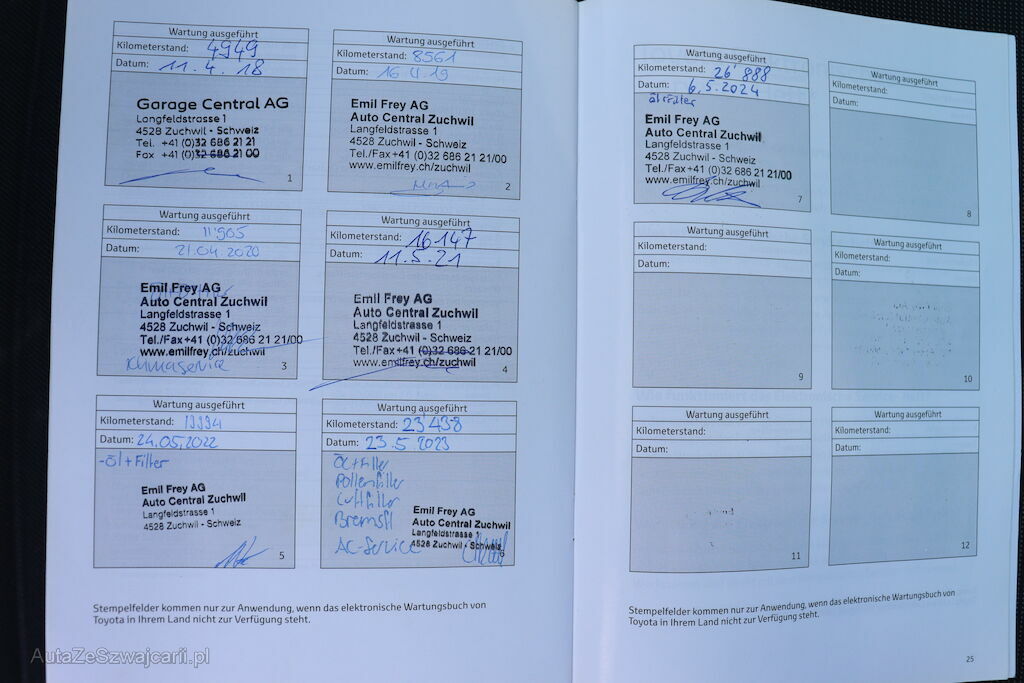 Wartung ausgeführt
Kilometerstand: 4949
Datum: 11.4.18
Garage Central AG
Langfeldstrasse 1
4528 Zuchwil - Schweiz
Tel. +41 (0)32 686 21 21
Fax +41 (0)32 686 21 00
1
Wartung ausgeführt
Kilometerstand: 8561
Datum: 16 4 19
Emil Frey AG
Auto Central Zuchwil
Langfeldstrasse 1
4528 Zuchwil - Schweiz
Tel./Fax+41 (0)32 686 21 21/00
www.emilfrey.ch/zuchwil
2
Wartung ausgeführt
Kilometerstand: 11'905
Datum: 21.04.2020
Emil Frey AG
Auto Central Zuchwil
Langfeldstrasse 1
4528 Zuchwil - Schweiz
Tel./Fax+41 (0)32 686 21 21/00
www.emilfrey.ch/zuchwil
Klimaservice
3
Wartung ausgeführt
Kilometerstand: 16147
Datum: 11.5.21
Emil Frey AG
Auto Central Zuchwil
Langfeldstrasse 1
4528 Zuchwil - Schweiz
Tel./Fax+41 (0)32 686 21 21/00
www.emilfrey.ch/zuchwil
4
Wartung ausgeführt
Kilometerstand: 19934
Datum: 24.05.2022
-Öl+Filter
Emil Frey AG
Auto Central Zuchwil
Langfeldstrasse 1
4528 Zuchwil - Schweiz
5
Wartung ausgeführt
Kilometerstand: 23'438
Datum: 23.5.2023
Öl+Filter
Pollenfilter
Luftfilter
Bremsfl
AC-Service
Emil Frey AG
Auto Central Zuchwil
Langfeldstrasse 1
4528 Zuchwil - Schweiz
6
Stempelfelder kommen nur zur Anwendung, wenn das elektronische Wartungsbuch von
Toyota in Ihrem Land nicht zur Verfügung steht.
Wartung ausgeführt
Kilometerstand: 26'888
Datum: 6.5.2024
Emil Frey AG
Auto Central Zuchwil
Langfeldstrasse 1
4528 Zuchwil - Schweiz
Tel./Fax+41 (0)32 686 21 21/00
www.emilfrey.ch/zuchwil
7
Wartung ausgeführt
Kilometerstand:
Datum:
8
Wartung ausgeführt
Kilometerstand:
Datum:
9
Wartung ausgeführt
Kilometerstand:
Datum:
10
Wartung ausgeführt
Kilometerstand:
Datum:
11
Wartung ausgeführt
Kilometerstand:
Datum:
12
Stempelfelder kommen nur zur Anwendung, wenn das elektronische Wartungsbuch von
Toyota in Ihrem Land nicht zur Verfügung steht.
25
AutaZeSzwajcarii.pl